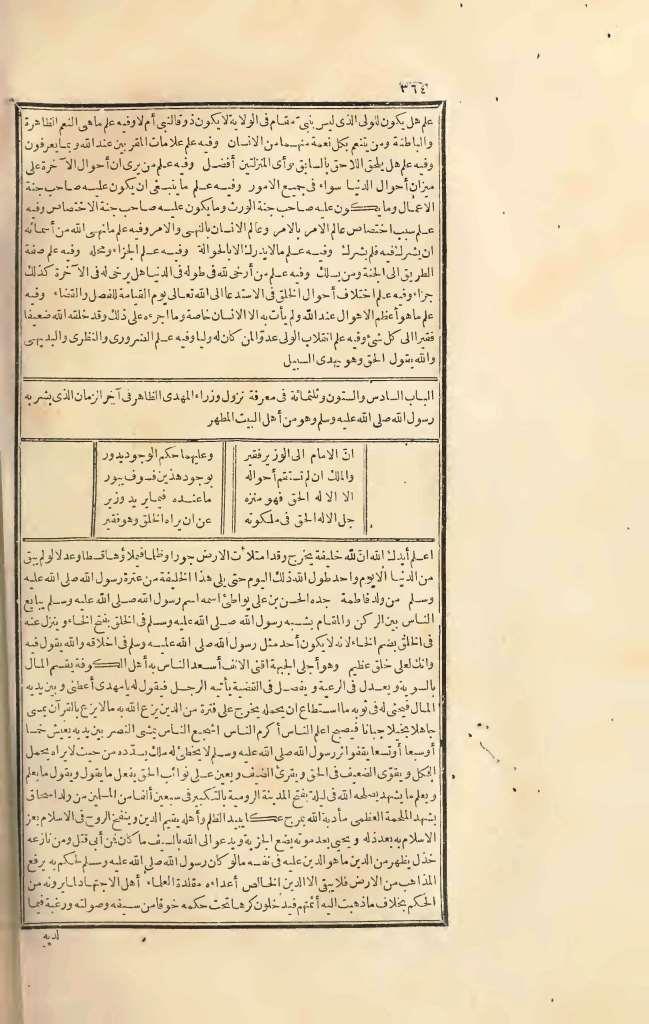 ٣٦٤
علم هل يكون للولى الذى ليس بنبى مقام فى الولاية لا يكون ذوقا للنبى أم لا وفيه علم ما هى النعم الظاهرة
والباطنة ومن يتنعم بكل نعمة منهما من الانسان وفيه علم علامات المقربين عند الله وبما يعرفون
وفيه علم هل يلحق اللاحق بالسابق وأى المنزلتين أفضل وفيه علم من يرى ان أحوال الآخرة على
ميزان أحوال الدنيا سواء فى جميع الامور وفيه علم ما ينبغى ان يكون عليه صاحب جنة
الاعمال وما يكون عليه صاحب جنة الورث وما يكون عليه صاحب جنة الاختصاص وفيه
علم سبب اختصاص عالم الامر بالامر وعالم الانسان بالنهى والامر وفيه علم ما نهى الله من أسمائه
ان يشرك فيه فلم يشرك وفيه علم ما لا يدرك الا بالحوالة وفيه علم الجزاء ومحله وفيه علم صفة
الطريق الى الجنة ومن يسلك وفيه علم من أرخى له فى طوله فى الدنيا هل يرخى له فى الآخرة كذلك
جزاء وفيه علم اختلاف أحوال الخلق فى الاستدعا الى الله تعالى يوم القيامة للفصل والقضاء وفيه
علم ما هو أعظم الاهوال عند الله ولم يأت به الا الانسان خاصة وما اجرءه على ذلك وقد خلقه الله ضعيفا
فقيرا الى كل شئ وفيه علم انقلاب الولى عدوّا لمن كان له وليا وفيه علم الضرورى والنظرى والبديهى
والله يقول الحق وهو يهدى السبيل
الباب السادس والستون وثلثمائة فى معرفة نزول وزراء المهدى الظاهر فى آخر الزمان الذى بشر به
رسول الله صلى الله عليه وسلم وهو من أهل البيت المطهر
انّ الامام الى الوزير فقير وعليهما حكم الوجود يدور
والملك ان لم تستقم أحواله بوجود هذين فسوف يبور
الا الاله الحق فهو منزه ما عنده فيما يريد وزير
جل الاله الحق فى ملكوته عن ان يراه الخلق وهو فقير
اعلم أيدك الله انّ لله خليفة يخرج وقد امتلأت الارض جورا وظلما فيملؤها قسطا وعدلا لو لم يبق
من الدنيا الا يوم واحد طول الله ذلك اليوم حتى يلى هذا الخليفة من عترة رسول الله صلى الله عليه
وسلم من ولد فاطمة جده الحسن بن على يواطئ اسمه اسم رسول الله صلى الله عليه وسلم يبايع
الناس بين الركن والمقام يشبه رسول الله صلى الله عليه وسلم فى الخلق بفتح الخاء وينزل عنه
فى الخلق بضم الخاء لانه لا يكون أحد مثل رسول الله صلى الله عليه وسلم فى اخلاقه والله يقول فيه
وانك لعلى خلق عظيم وهو أجلى الجبهة اقنى الانف أسعد الناس به أهل الكوفة يقسم المال
بالسوية ويعدل فى الرعية ويفصل فى القضية يأتيه الرجل فيقول له يا مهدى أعطنى وبين يديه
المال فيحثى له فى ثوبه ما استطاع ان يحمله يخرج على فترة من الدين يزع الله به ما لا يزع بالقرآن يمسى
جاهلا بخيلا جبانا فيصبح اعلم الناس أكرم الناس اشجع الناس يمشى النصر بين يديه يعيش خمسا
أو سبعا أو تسعا يقفو اثر رسول الله صلى الله عليه وسلم لا يخطئ له ملك يسدّده من حيث لا يراه يحمل
الكل ويقوّى الضعيف فى الحق ويقرى الضيف ويعين على نوائب الحق يفعل ما يقول ويقول ما يعلم
ويعلم ما يشهد يصلحه الله فى ليلة يفتح المدينة الرومية بالتكبير فى سبعين ألفا من المسلمين من ولد اسحاق
يشهد الملحمة العظمى مأدبة الله بمرج عكا يبيد الظلم وأهله يقيم الدين وينفخ الروح فى الاسلام يعز
الاسلام به بعد ذله ويحيى بعد موته يضع الجزية ويدعو الى الله بالسيف فما كان فمن أبى قتل ومن نازعه
خذل يظهر من الدين ما هو الدين عليه فى نفسه ما لو كان رسول الله صلى الله عليه وسلم لحكم به يرفع
المذاهب من الارض فلا يبقى الا الدين الخالص أعداءه مقلدة العلماء أهل الاجتهاد لما يرونه من
الحكم بخلاف ما ذهبت اليه أئمتهم فيدخلون كرها تحت حكمه خوفا من سيفه وصولته ورغبة فيما
لديه